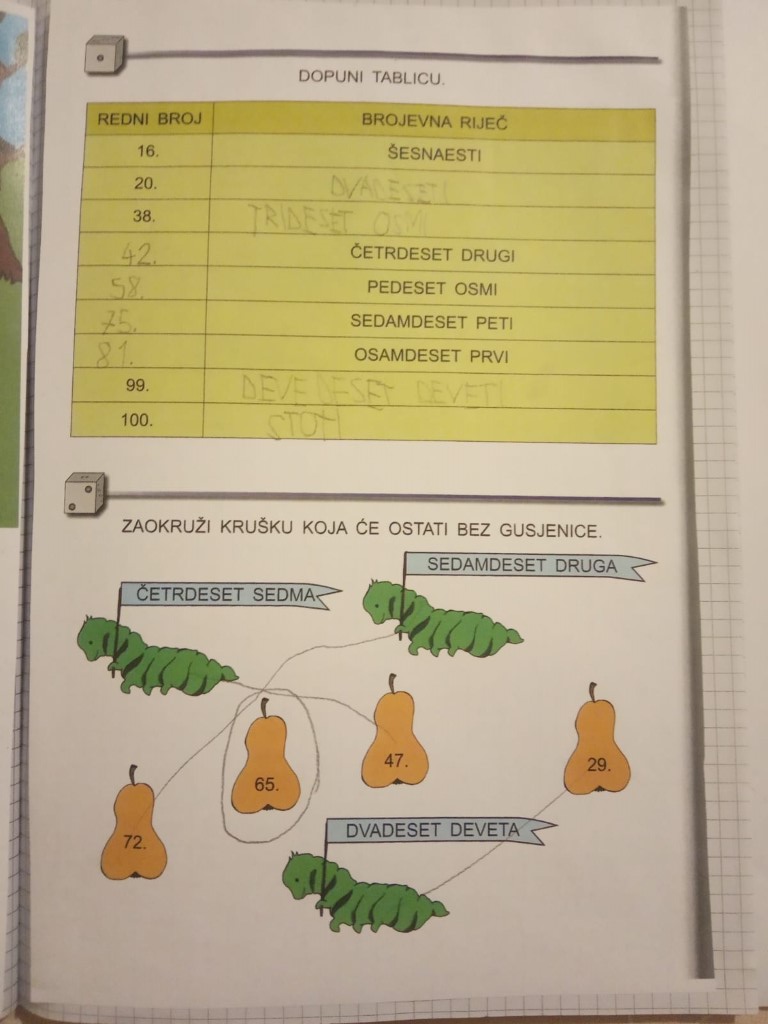 DOPUNI TABLICU.
REDNI BROJ BROJEVNA RIJEČ
16. ŠESNAESTI
20. DVADESETI
38. TRIDESET OSMI
42. ČETRDESET DRUGI
58. PEDESET OSMI
75. SEDAMDESET PETI
81. OSAMDESET PRVI
99. DEVEDESET DEVETI
100. STOTI
ZAOKRUŽI KRUŠKU KOJA ĆE OSTATI BEZ GUSJENICE.
SEDAMDESET DRUGA
ČETRDESET SEDMA
47.
29.
65.
72.
DVADESET DEVETA